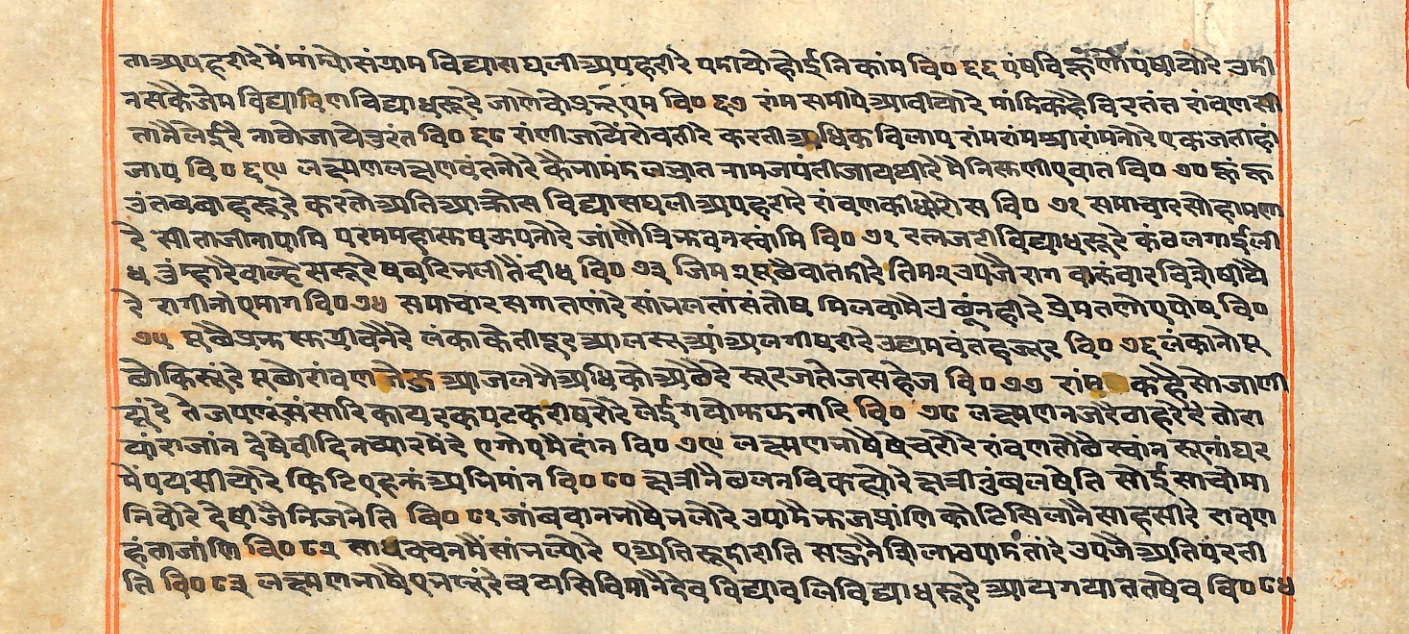 ता अपहरी रे में मांड्यो संग्राम विद्या सघली अपहरी रे पमायो होई निकांम वि० ६६ पंषवि
न सकै जेम विद्या विण विद्याधरू रे जाणे को एम वि० ६७ रांम समीपै आवीयो रे मांमि कहै विरतंत रांवण सी
ता नै लेई रे नाठो जाये तुरंत वि० ६८ रांणी जायें रोवती रे करती अधिक विलाप रांम रांम श्रीरांमनो रे एक जती हां
जाप वि० ६९ लक्ष्मण लक्षणवंतनो रे कै नामंमल भ्रात नाम जपंती जायथी रे मै निसुणी ए वात वि० ७० हुं क
करतो अति आक्रोस विद्या सघली अपहरी रे रांवण कीधो रोस वि० ७१ समाचार सोहामणा
रे सीताजीना पामि परम महासुष ऊपनो रे जांणै त्रिभुवन स्वांमि वि० ७२ रत्नजटी विद्याधरू रे कंठ लगाई ली
ध तुं म्हारै वाल्हेसरू रे षबरि भली तैं दीध वि० ७३ जिम २ पूछै वातडी रे तिम २ उपजै राग वारंवार विशेषीयै
रे रागीनो ए माग वि० ७४ समाचार सगा तणां रे सांभलतां संतोष मिलवा प्रेम तणो ए पोष वि०
७५ पूछै प्रभु सुग्रीवनै रे लंका केती दूर आलसूआं अलगी षरी रे उद्यमवंत हजूर वि० ७६ लंकानो पू
छो किसूं रे पूछो रांवण तेज आज लगै अधिको अछै रे सूरज तेज सहेज वि० ७७ रांम कहै सो जाणी
यूं रे तेज संसारि कायर कपट करी षरो रे लेई गयो मुझ नारि वि० ७८ लक्ष्मण नजरे वाहरे रे तो
रांजांन देषेवी दिन च्यारमें रे एगो ए मैदांन वि० ७९ लक्ष्मण भाषै षेचरो रे रांवण तो छै स्वांन सूनां घर
में पयसीयो रे फिटि एहनुं अभिमांन वि० ८० क्षत्रीनै छल नवि कह्यो रे क्षत्री नुं बल षेति सोई साचो मा
निवो रे देषीजै निज नेति वि० ८१ जांबवान भाषै भलो रे उपामै भुज प्रांणि कोटिसिलानै साहसी रे रावण
हंता जांणि वि० ८२ साधवचन मैं सांभल्यो रे ए अति रूडी रीति सहुनै सिला उपामतां रे उपजै अति परती
ति वि० ८३ लक्ष्मण भाषै ए भलूं रे बयसि विमानै देव विद्याबलि विद्याधरू रे आय गया ततषेव वि० ८४